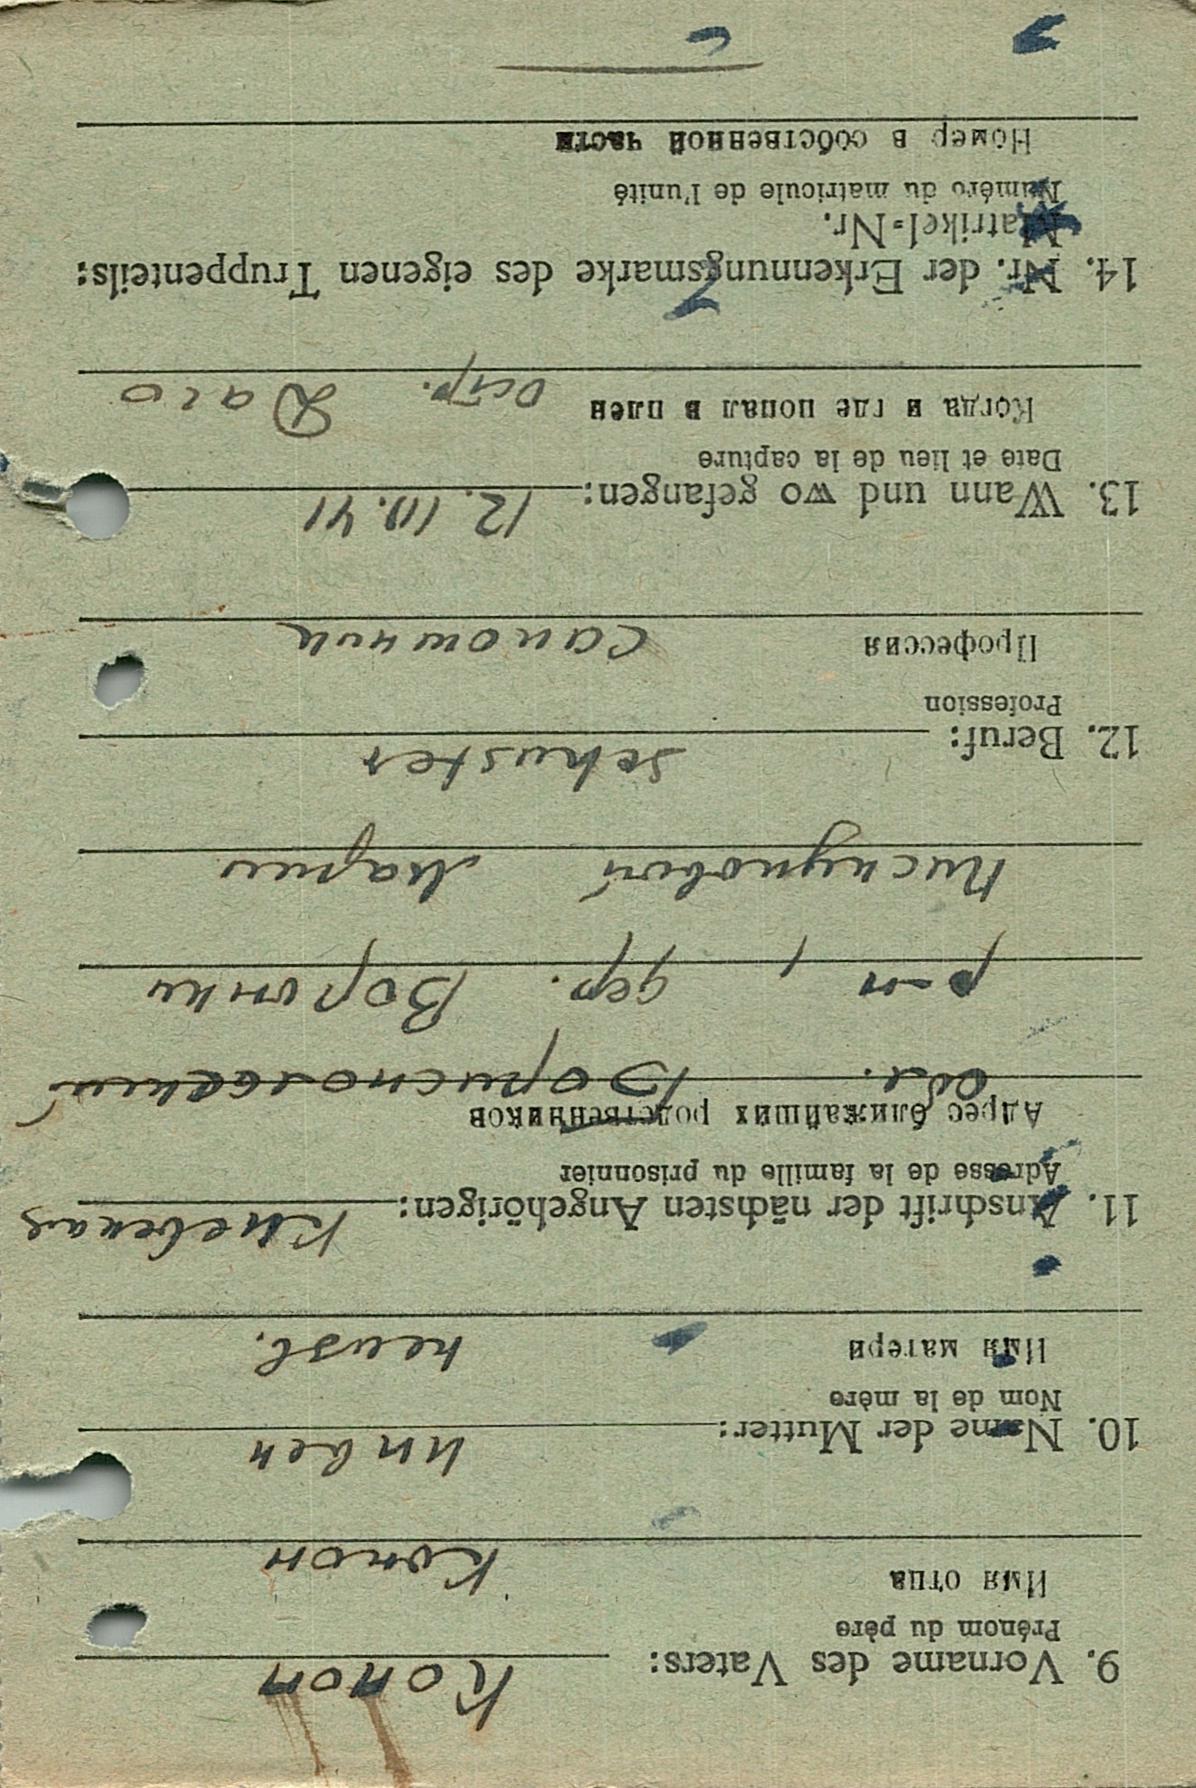 9. Vorname des Vaters: Konon
Prénom du père
Имя отца Конон
10. Name der Mutter: unbek
Nom de la mère
Имя матери неизв.
11. Anschrift der nächsten Angehörigen: Киевская
Adresse de la famille du prisonnier
Адрес ближайших родственников
обл. Бориспольский
р-н, дер. Воронки
Пискуновой Марии
12. Beruf: Schuster
Profession
Профессия сапожник
13. Wann und wo gefangen: 12.10.41
Date et lieu de la capture
Когда и где попал в плен остр. Даго
14. Nr. der Erkennungsmarke des eigenen Truppenteils:
Matrikel-Nr.
Numéro du matricule de l'unité
Номер в собственной части